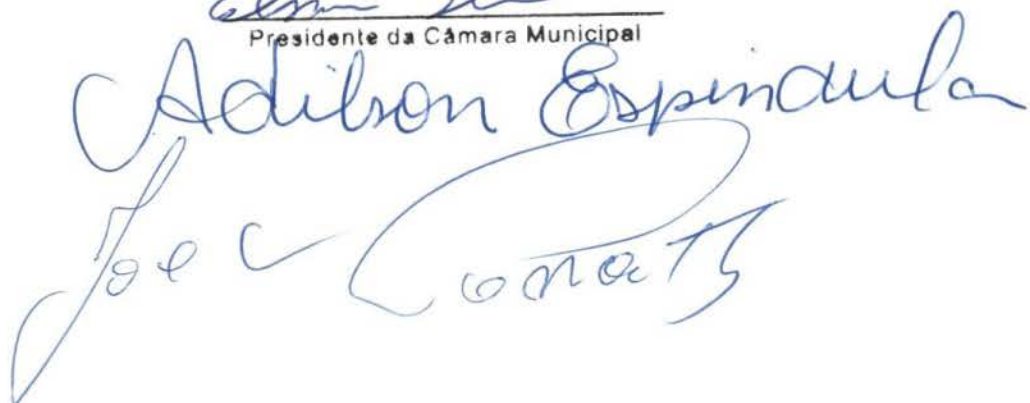 Presidente da Câmara Municipal
Adilson Espindula
Joel